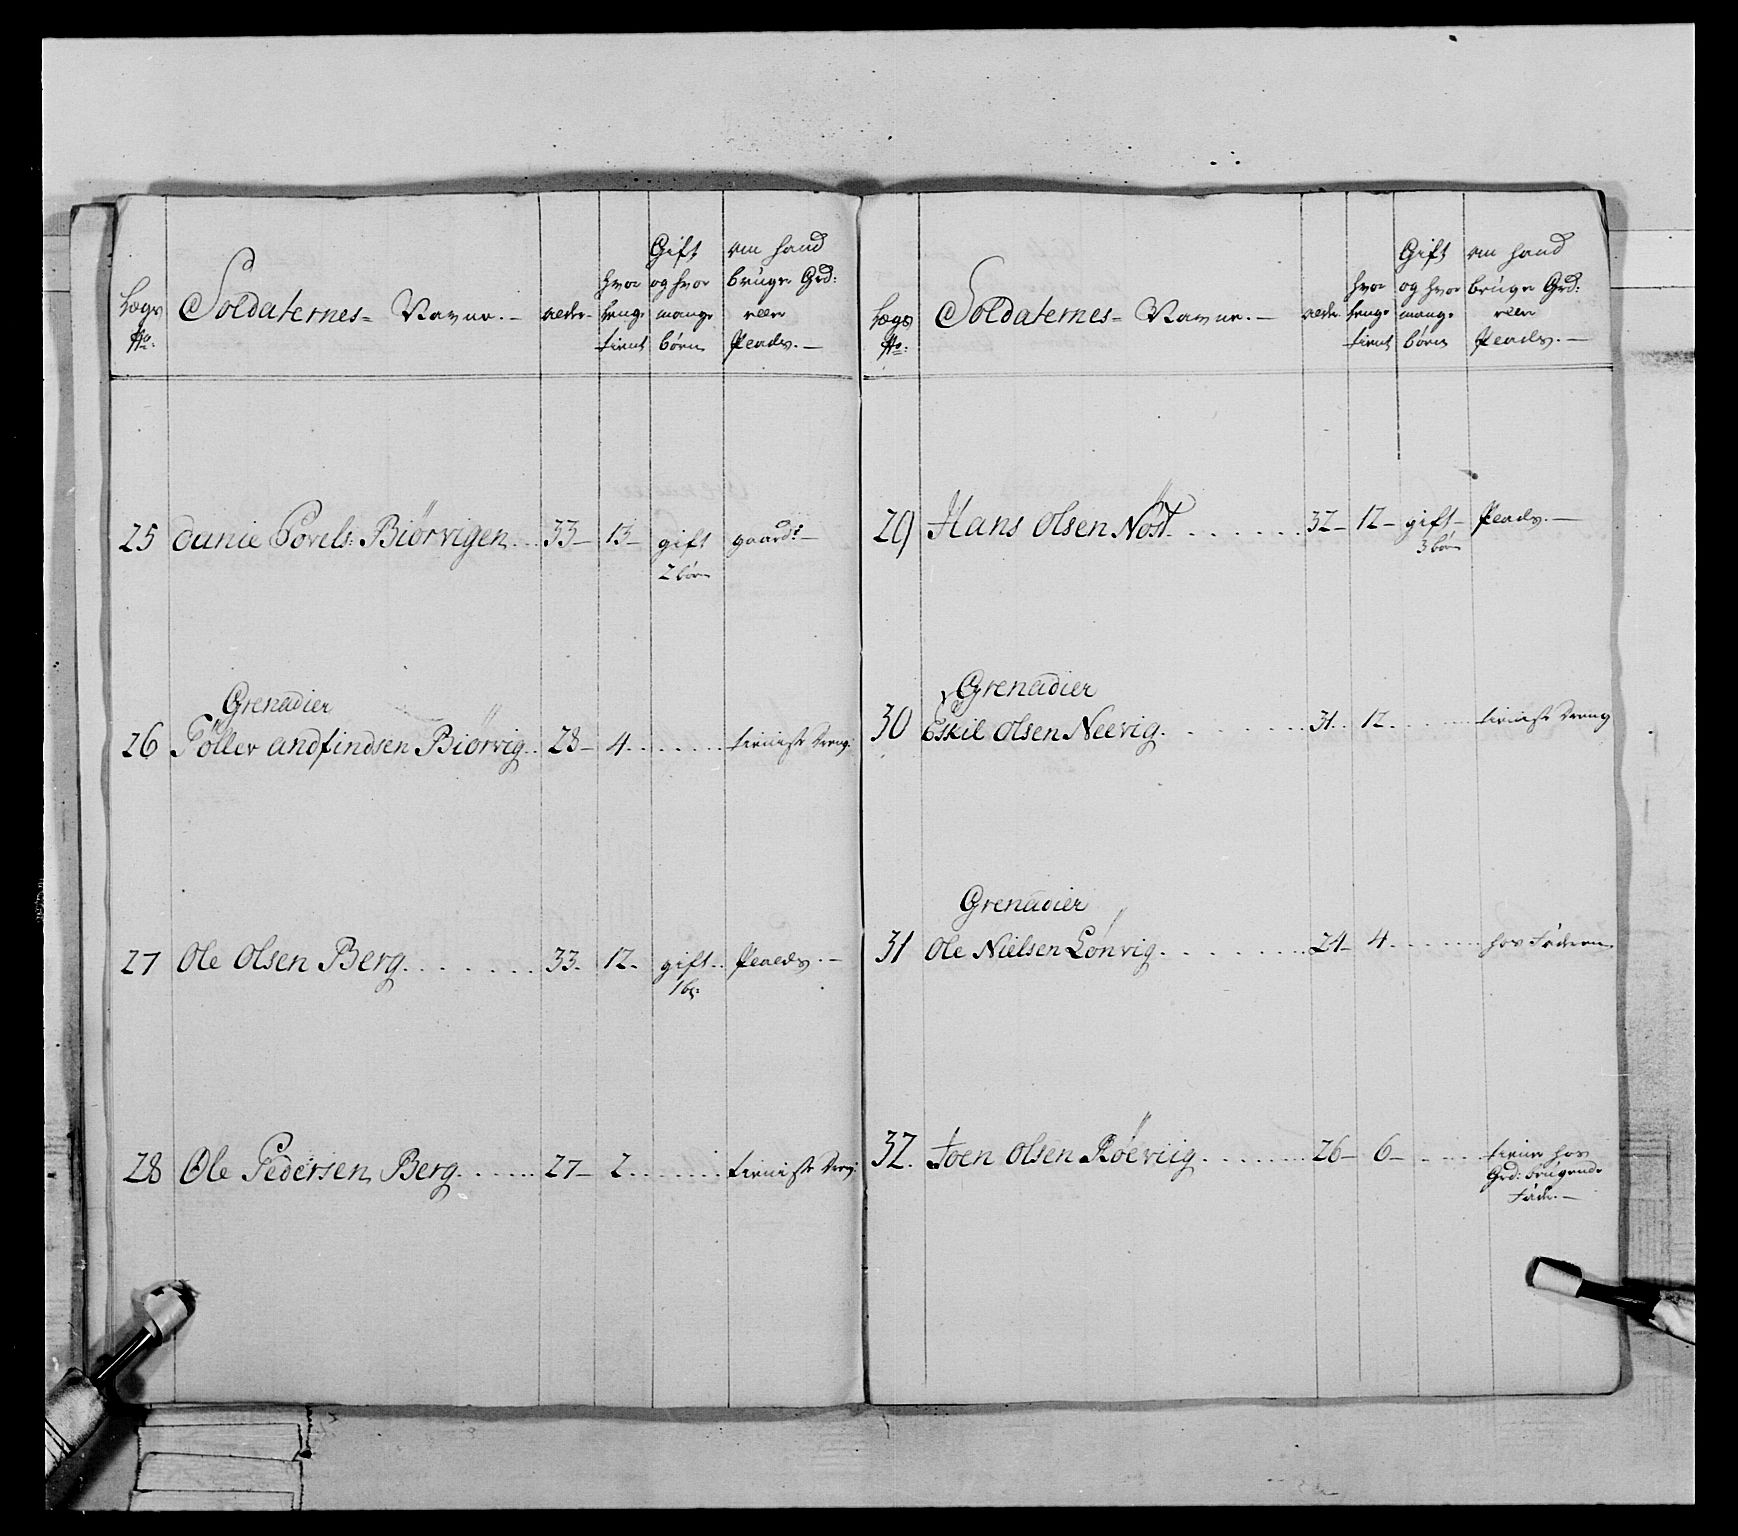 Lægs No: Soldaternes= Navne.– alder– hvor længe tient Gift og hvor mange børn om hand bruger Grd: eller Plads.–
25 Danie Povels: Biørvigen... 33– 13– gift 2 børn gaard:–
Grenadier
26 Tøller andfindsen Biørvig.. 28– 4....... tieniste Dreng.
27 Ole Olsen Berg....... 33. 12. gift.. 1 b: Plads.–
28 Ole Pedersen Berg...... 27– 2....... tieniste Dreng:
Lægs No: Soldaternes= Navne.– alder hvor længe tient Gift og hvor mange børn om hand bruge Grd: eller Plads.–
29 Hans Olsen Nøst....... 32– 12– gift– 3 børn Plads.–
Grenadier
30 Eskil Olsen Neevig....... 31.. 12....... tieniste Dreng
Grenadier
31 Ole Nielsen Lønvig....... 24– 4....... hos Faderen
32. Joen Olsen Røeviig....... 26– 6–..... tiener hos
Grd: brugende
Fader.–